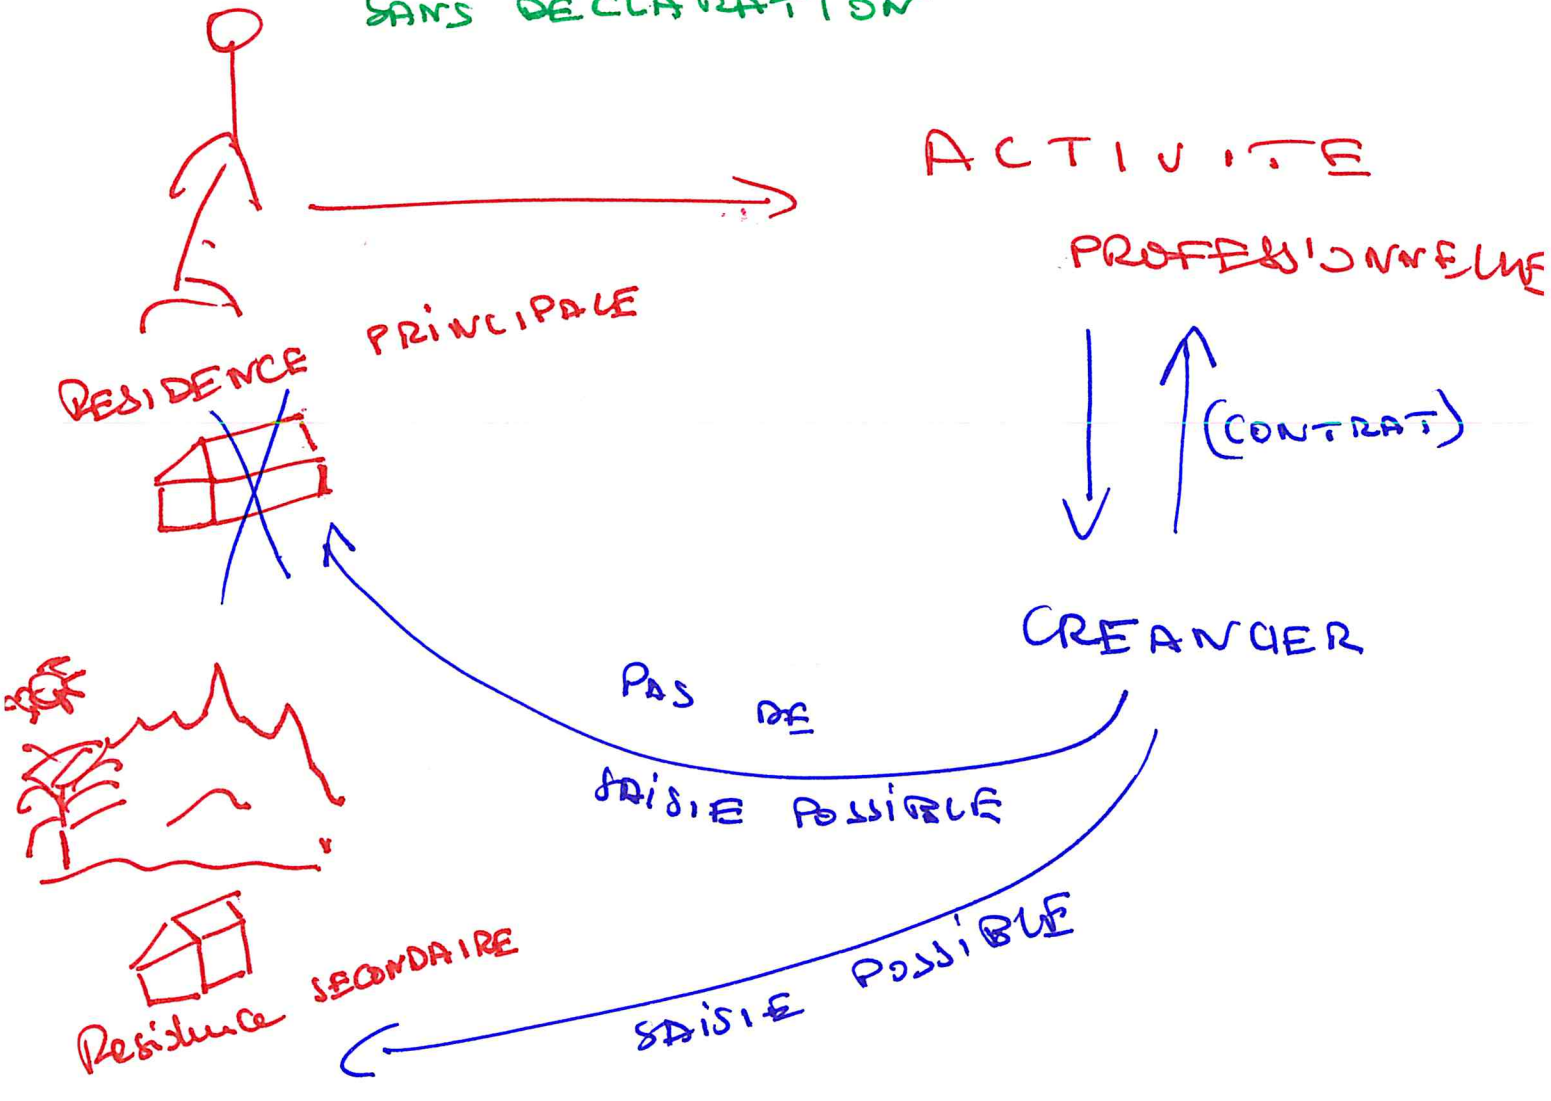 SANS DECLARATION
ACTIVITE
PROFESSIONNELLE
RESIDENCE PRINCIPALE
(CONTRAT)
CREANCIER
PAS DE
SAISIE POSSIBLE
SAISIE POSSIBLE
Residence SECONDAIRE